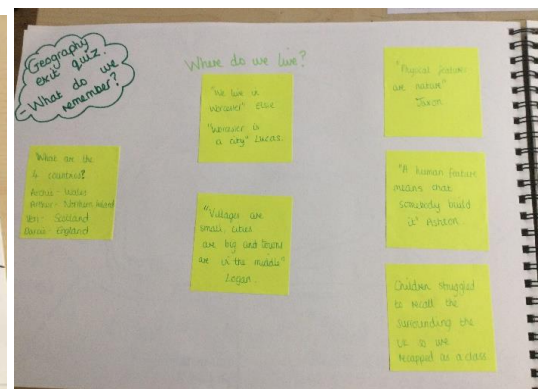 Geography
exit quiz.
- What do we
remember?
Where do we live?
"What are the
4 countries?
Archie - Wales
Arthur - Northern Ireland
- Scotland
- England
"We live in
Worcester" Elsie
"Worcester is
a city" Lucas.
"Villages are
small, cities
are big and towns
are in the middle"
Logan.
"Physical features
are nature"
"A human feature
means that
somebody build
it" Ashton.
Children struggled
to recall the
surrounding the
UK so we
recapped as a class.